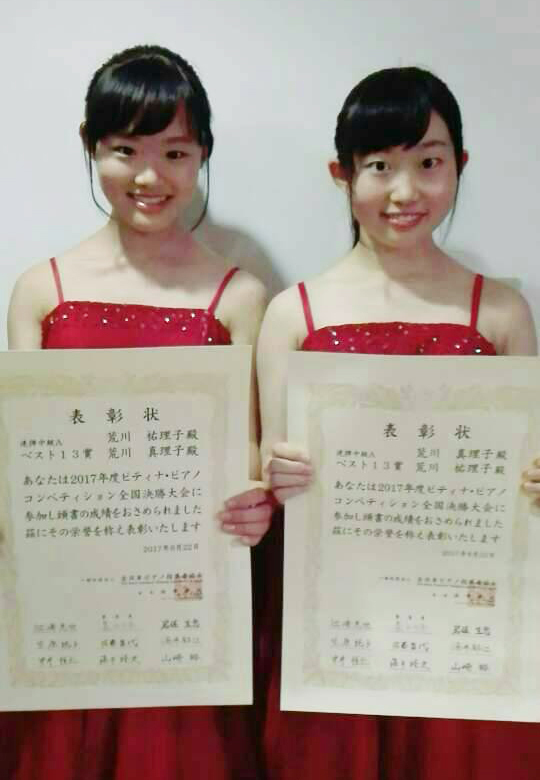 表彰状
連弾中級A 荒川 祐理子殿
ベスト13賞 荒川 真理子殿
あなたは2017年度ピティナ・ピアノ
コンペティション全国決勝大会に
参加し頭書の成績をおさめられました
茲にその栄誉を称え表彰いたします
2017年8月22日
一般社団法人 全日本ピアノ指導者協会
表彰状
連弾中級A 荒川 真理子殿
ベスト13賞 荒川 祐理子殿
あなたは2017年度ピティナ・ピアノ
コンペティション全国決勝大会に
参加し頭書の成績をおさめられました
茲にその栄誉を称え表彰いたします
2017年8月22日
一般社団法人 全日本ピアノ指導者協会